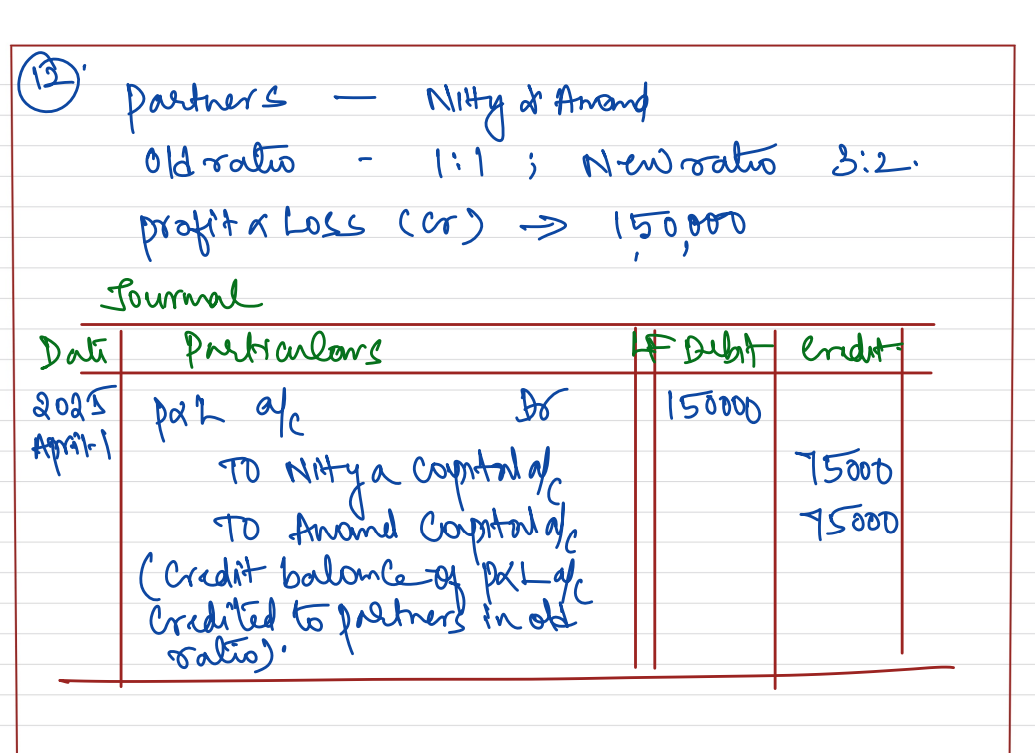 12.
Partners — Nitty & Anand
Old ratio - 1:1 ; New ratio 3:2.
profit & Loss (Cr) ⇒ 150,000
Journal
Date Particulars LF Debit Credit
2025 P&L a/c Dr 150000
April-1
TO Nitty a Capital a/c 75000
TO Anand Capital a/c 75000
(Credit balance of P&L a/c
Credited to partners in old
ratio).